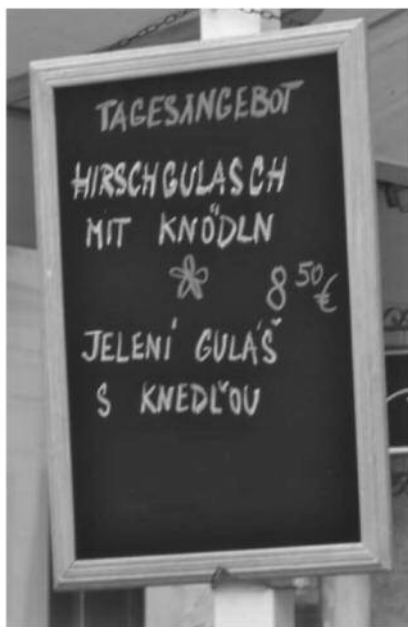 TAGESANGEBOT
HIRSCHGULASCH
MIT KNÖDLN
8 50 €
JELENÍ GULÁŠ
S KNEDĽOU